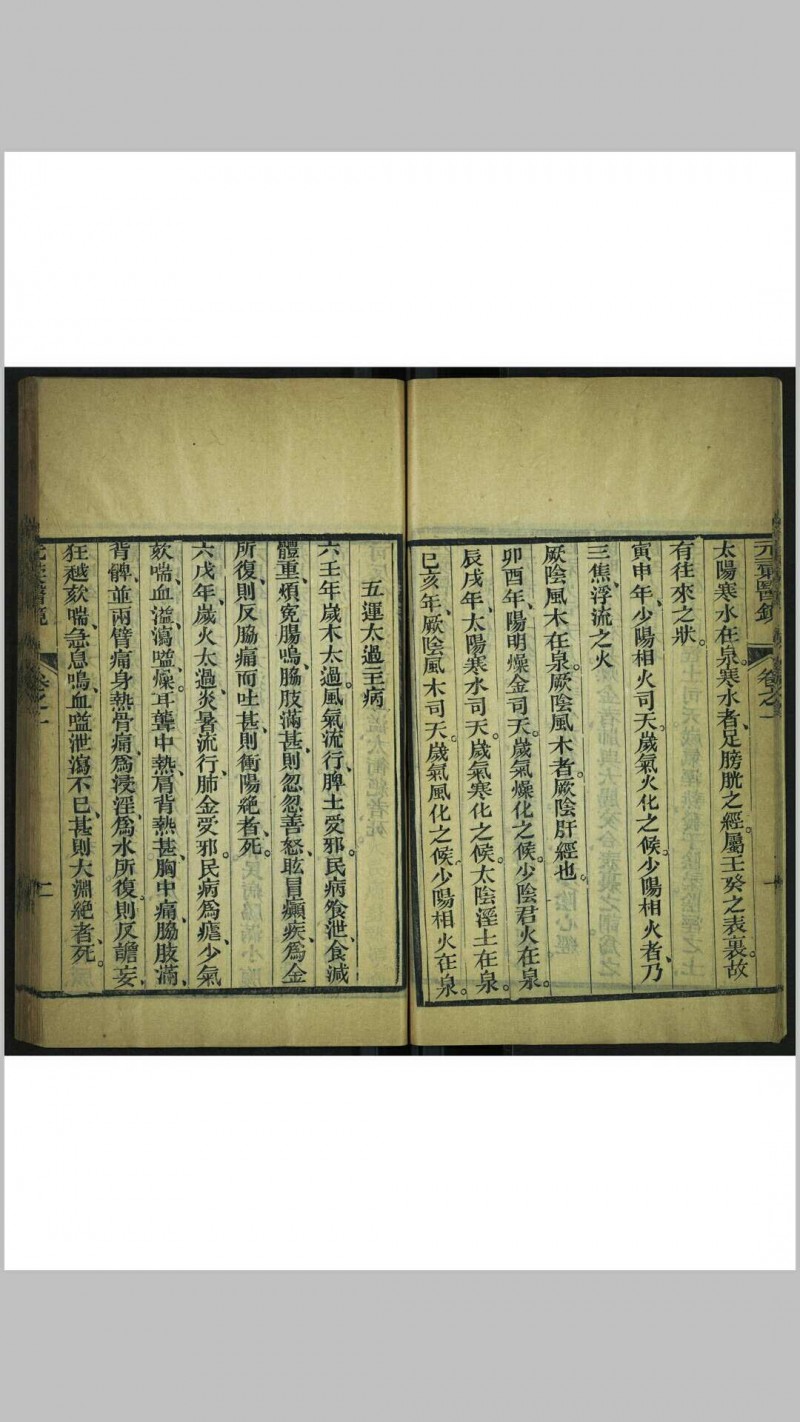 卷之一
太陽寒水在泉。寒水者、足膀胱之經。屬壬癸之表裏。故
有往來之狀。
寅申年、少陽相火司天。歲氣火化之候。少陽相火者、乃
三焦、浮流之火
厥陰風木在泉。厥陰風木者。厥陰肝經也。
卯酉年、陽明燥金司天。歲氣燥化之候。少陰君火在泉。
辰戌年、太陽寒水司天。歲氣寒化之候。太陰淫土在泉。
巳亥年、厥陰風木司天。歲氣風化之候。少陽相火在泉。
五運太過主病
六壬年歲木太過。風氣流行、脾土受邪。民病飧泄、食減
體重、煩寃腸鳴、脇肢滿、甚則忽忽善怒、眩冒癲疾、爲金
所復、則反脇痛而吐甚、則衝陽絶者、死。
六戊年、歲火太過、炎暑流行、肺金受邪。民病爲瘧、少氣
欬喘、血溢、瀉嗌、燥。耳聾中熱、肩背熱甚、胸中痛、脇肢滿、
背髀、並兩臂痛身熱骨痛、爲浸淫、爲水所復、則反譫妄、
狂越欬喘、急息鳴、血嗌泄瀉不巳、甚則大淵絶者、死。
卷之一
二